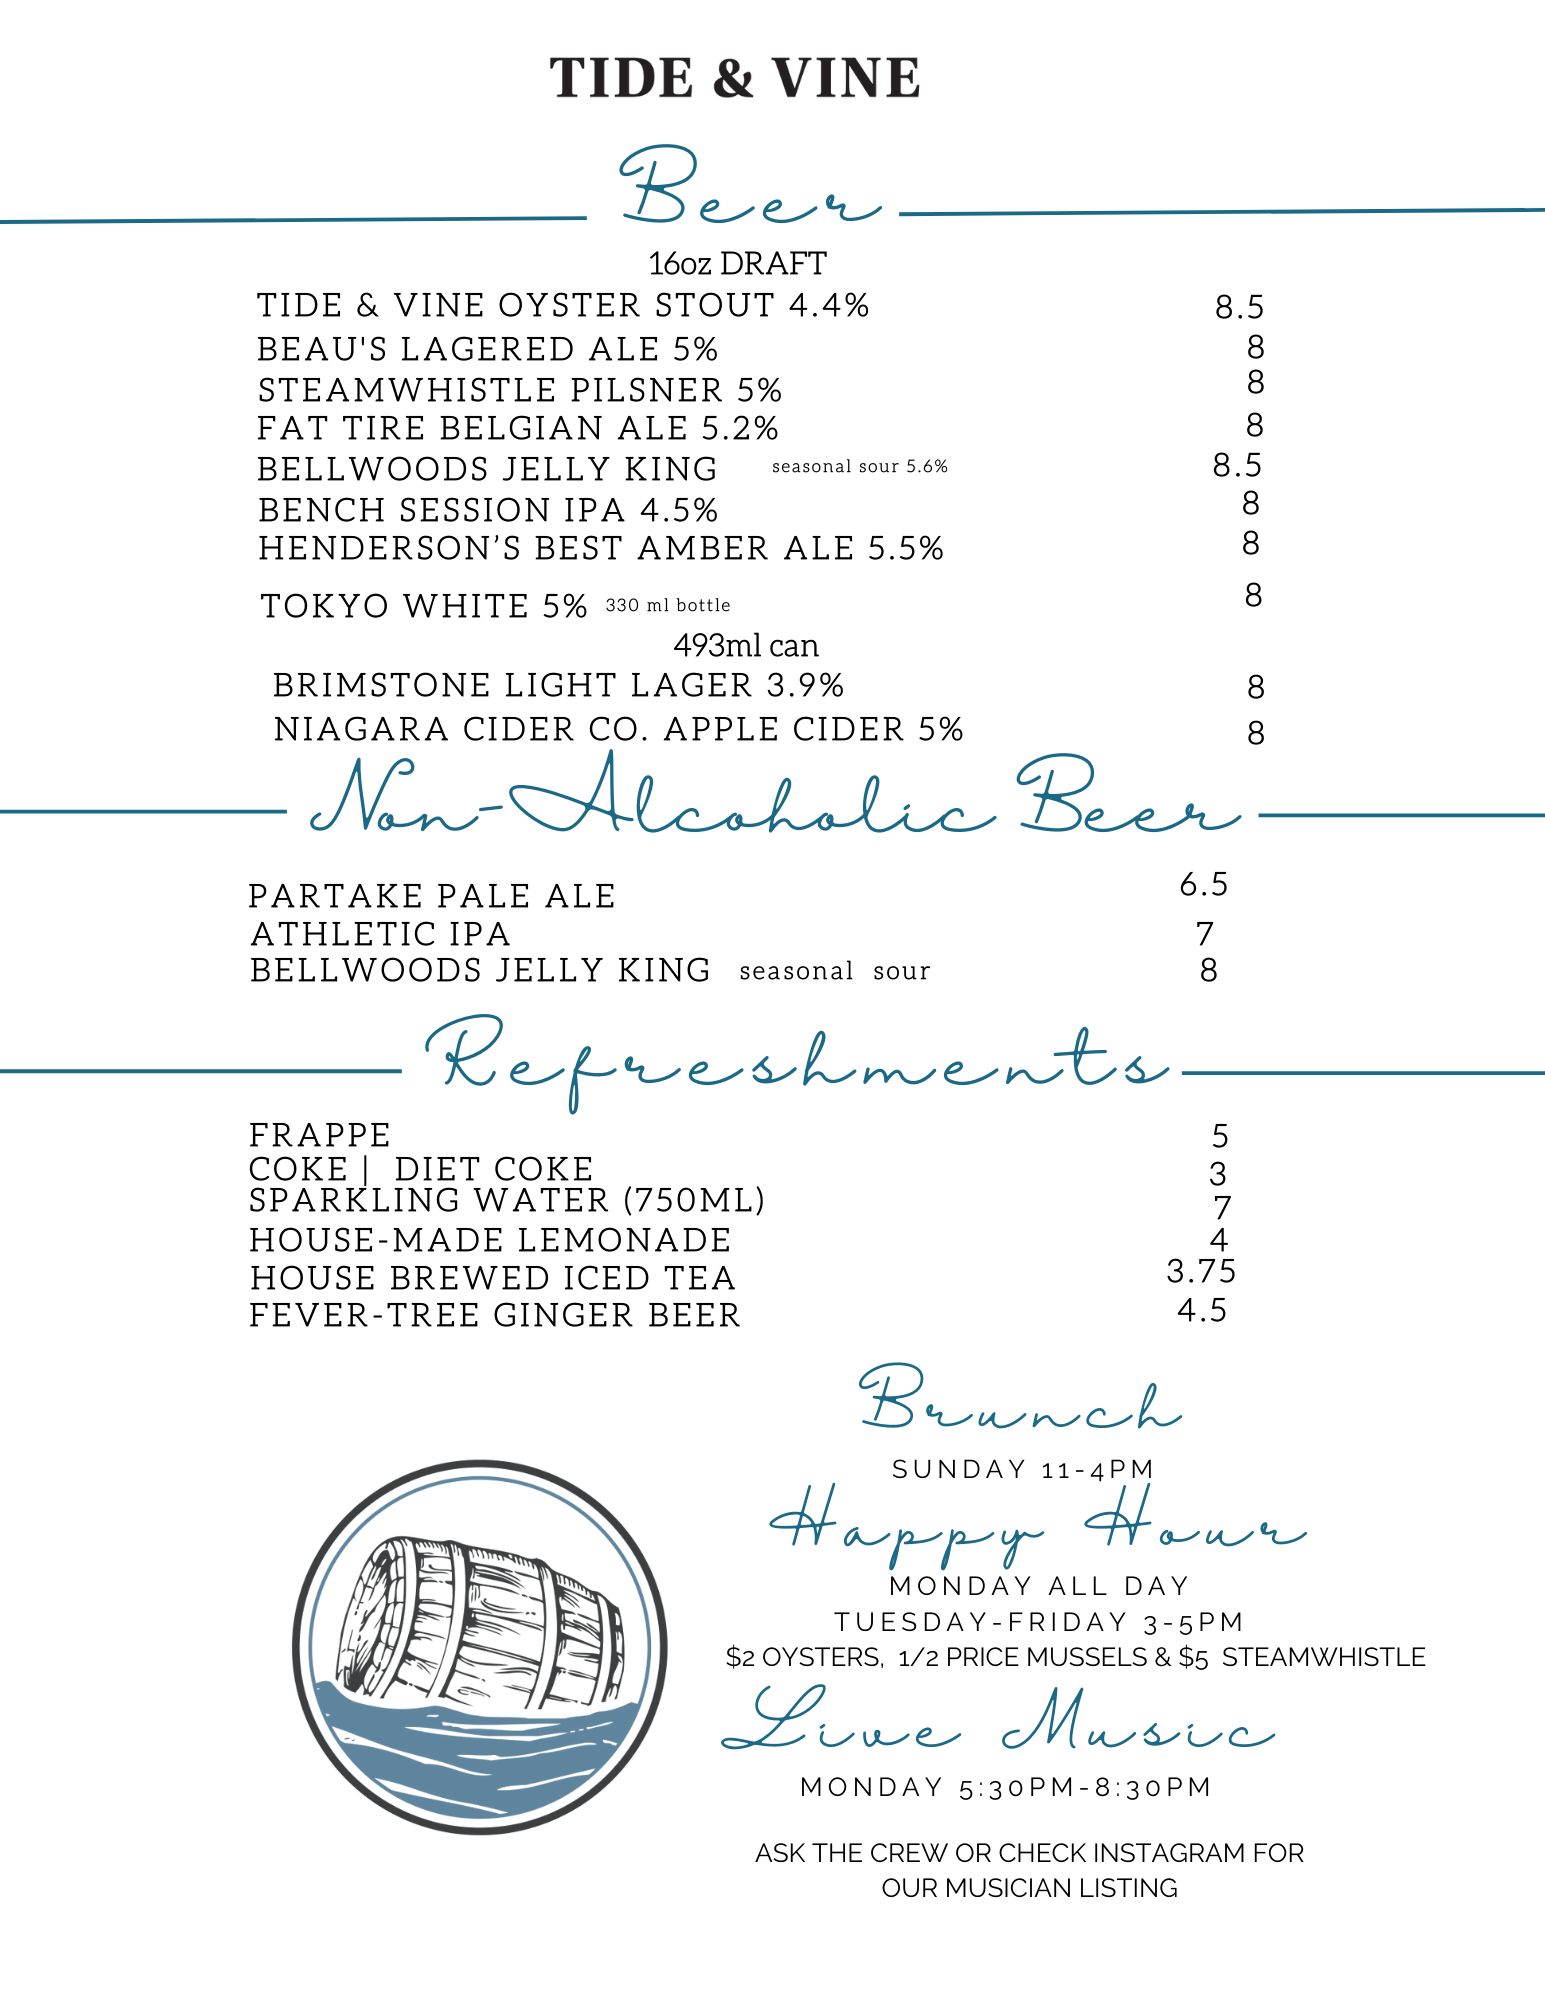 TIDE & VINE
Beer
16oz DRAFT
TIDE & VINE OYSTER STOUT 4.4% 8.5
BEAU'S LAGERED ALE 5% 8
STEAMWHISTLE PILSNER 5% 8
FAT TIRE BELGIAN ALE 5.2% 8
BELLWOODS JELLY KING seasonal sour 5.6% 8.5
BENCH SESSION IPA 4.5% 8
HENDERSON’S BEST AMBER ALE 5.5% 8
TOKYO WHITE 5% 330 ml bottle 8
493ml can
BRIMSTONE LIGHT LAGER 3.9% 8
NIAGARA CIDER CO. APPLE CIDER 5% 8
Non-Alcoholic Beer
PARTAKE PALE ALE 6.5
ATHLETIC IPA 7
BELLWOODS JELLY KING seasonal sour 8
Refreshments
FRAPPE 5
COKE | DIET COKE 3
SPARKLING WATER (750ML) 7
HOUSE-MADE LEMONADE 4
HOUSE BREWED ICED TEA 3.75
FEVER-TREE GINGER BEER 4.5
Brunch
SUNDAY 11-4PM
Happy Hour
MONDAY ALL DAY
TUESDAY-FRIDAY 3-5PM
$2 OYSTERS, 1/2 PRICE MUSSELS & $5 STEAMWHISTLE
Live Music
MONDAY 5:30PM-8:30PM
ASK THE CREW OR CHECK INSTAGRAM FOR
OUR MUSICIAN LISTING